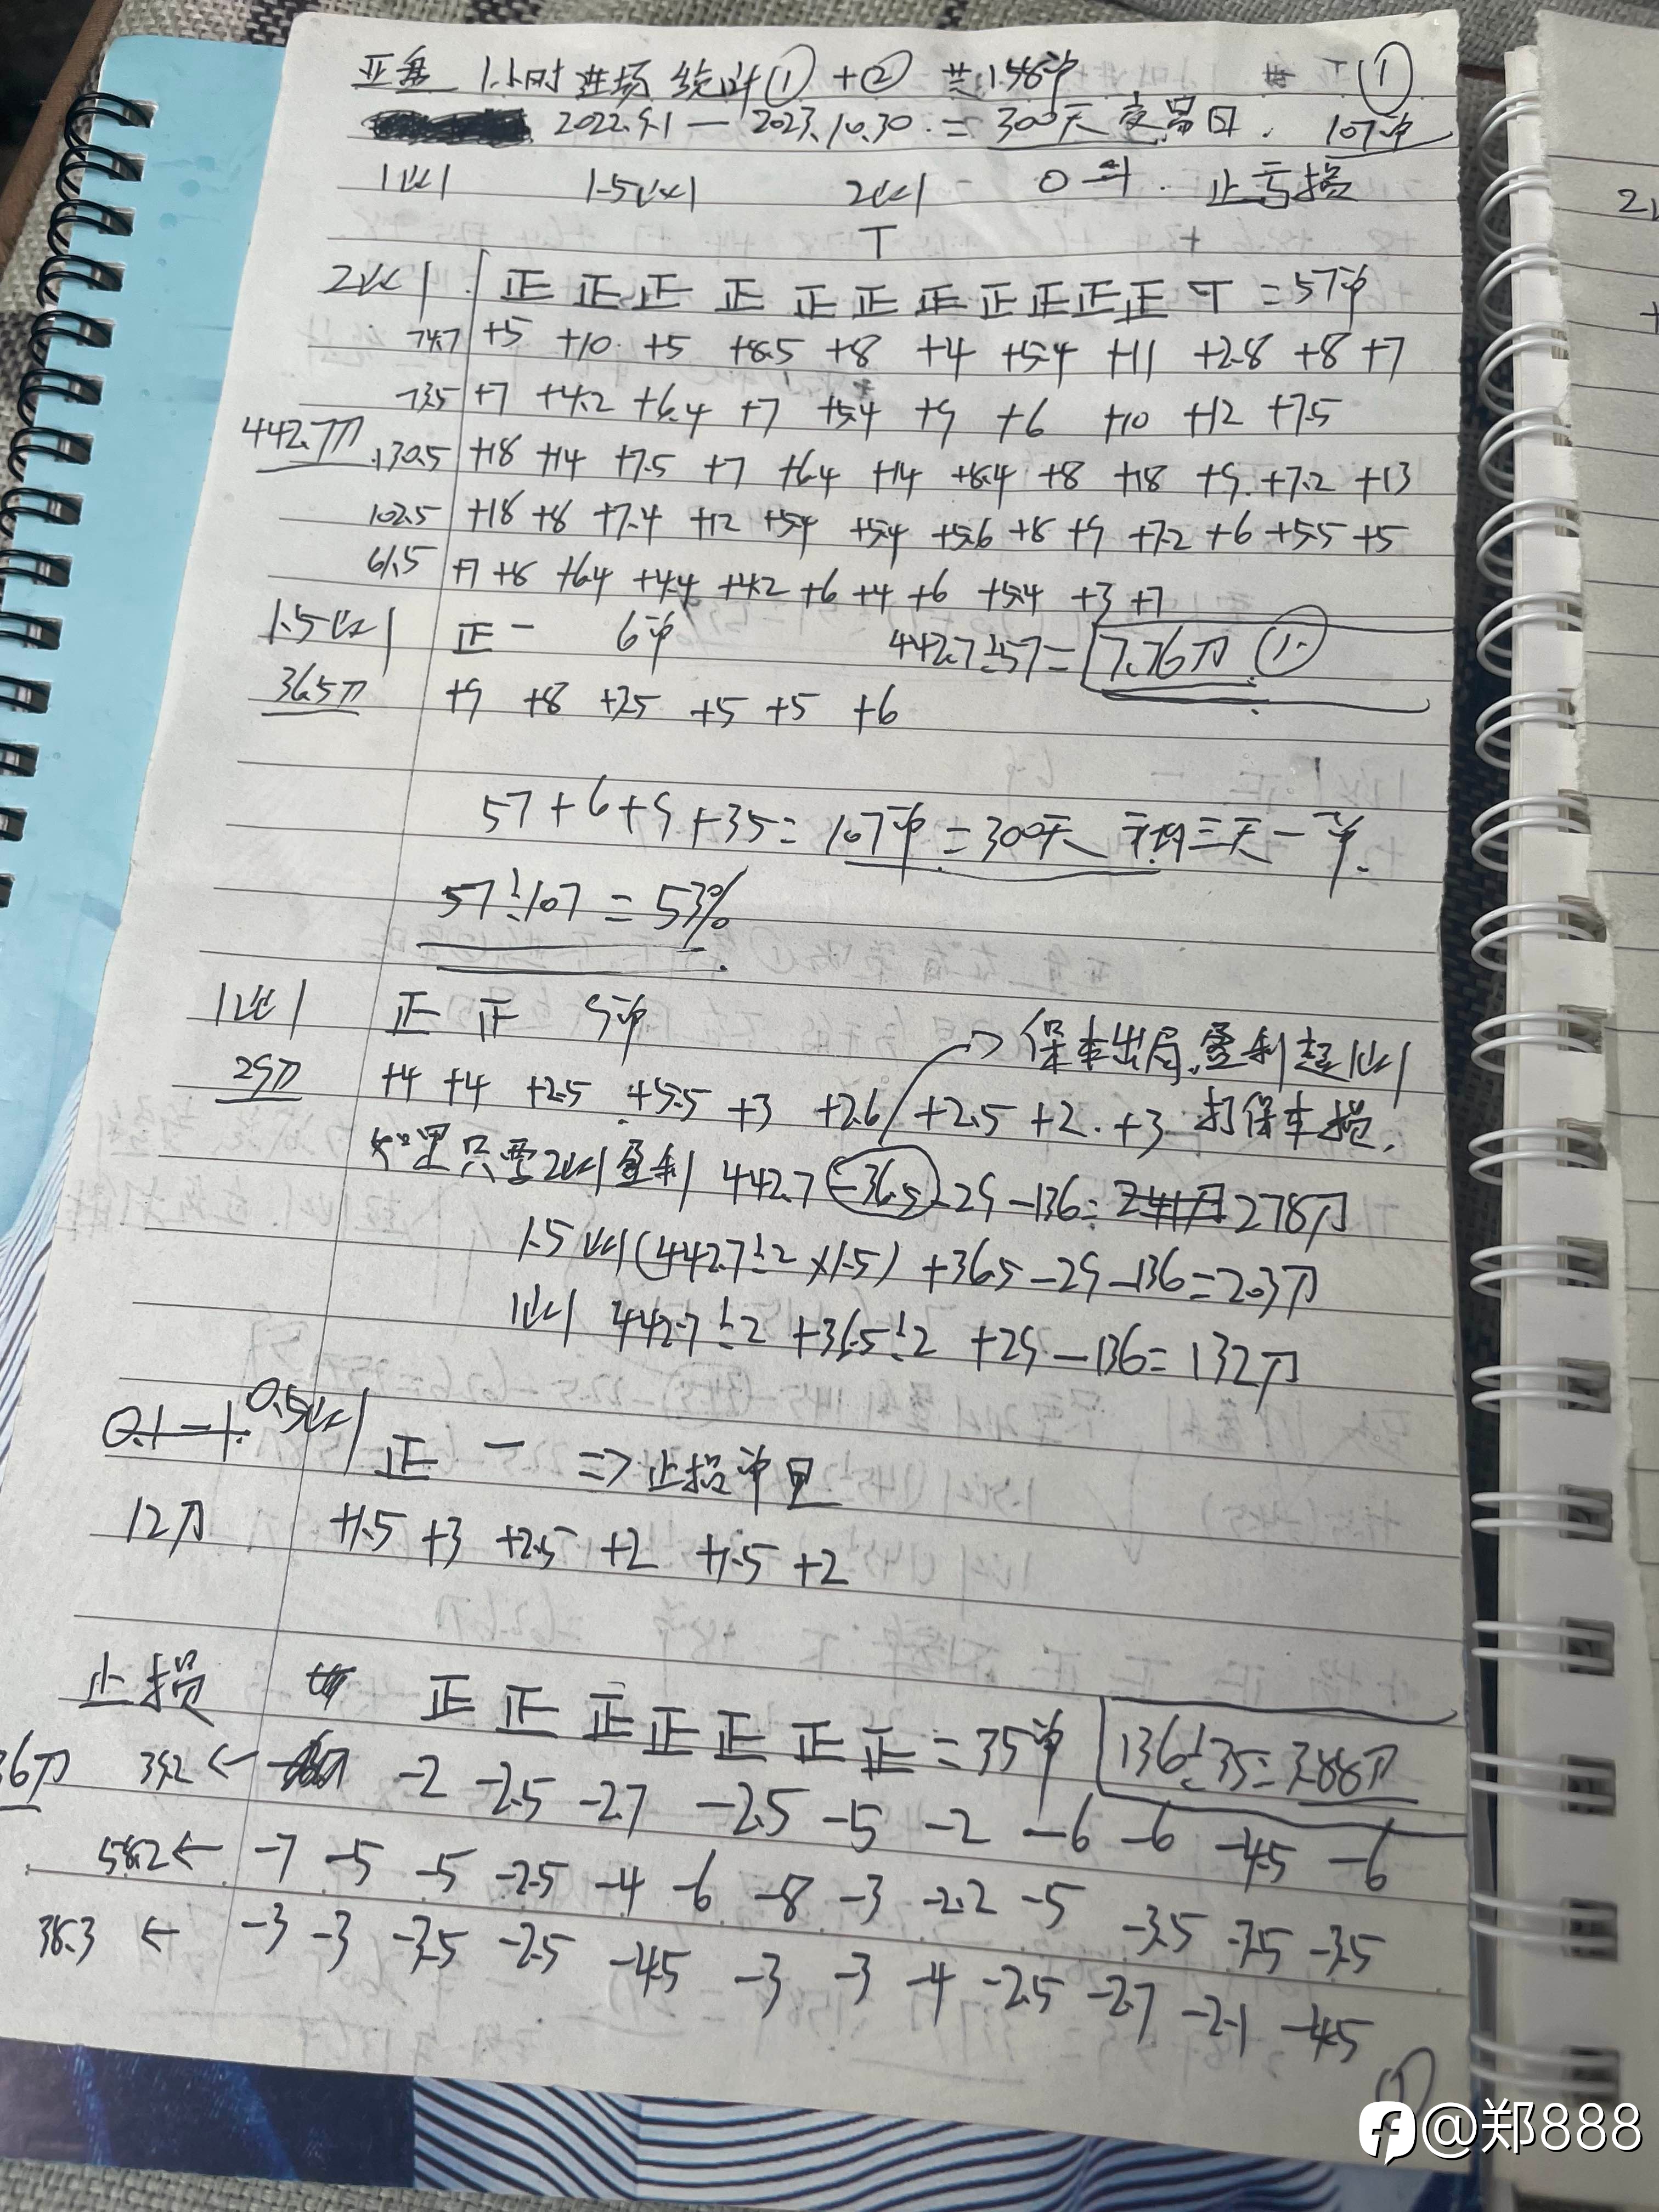 亚盘 1小时进场统计① + ② 共156单 ①
2022.9.1 — 2023.10.30. = 300天交易日. 107单
1比1 1.5比1 2比1 0 止亏损
2比1 正 正 正 正 正 正 正 正 正 正 正 T = 57单
74.7 +5 +10 +5 +8.5 +8 +4 +5.4 +11 +2.8 +8 +7
73.5 +7 +4.2 +6.4 +7 +5.4 +9 +6 +10 +12 +7.5
442.7刀 130.5 +18 +14 +7.5 +7 +6.4 +14 +8.4 +8 +18 +9 +7.2 +13
102.5 +18 +8 +7.4 +12 +5.4 +5.4 +5.6 +8 +9 +7.2 +6 +5.5 +5
61.5 +7 +8 +6.4 +4.4 +4.2 +6 +4 +6 +5.4 +3 +7
1.5比1 正 一 6单 442.7÷57= 7.76刀 ①
36.5刀 +9 +8 +3.5 +5 +5 +6
57+6+9+35=107单=300天 平均三天一单.
57÷107 = 53%
1比1 正 正 9单 → 保本出局,盈利超1比1
29刀 +4 +4 +2.5 +5.5 +3 +2.6 +2.5 +2. +3 打保本损.
如果只要2比1盈利 442.7 -36.5 -29 -136= 278刀
1.5比1(442.7÷2×1.5) +36.5 -29 -136=203刀
1比1 442.7÷2 +36.5÷2 +29 -136= 132刀
0.1-1. 0.5比1 正 一 => 止损单里
12刀 +1.5 +3 +2.5 +2 +1.5 +2
止损 正 正 正 正 正 正 正 =35单 136÷35=3.88刀
36刀 39.2 ← -2 -2.5 -2.7 -2.5 -5 -2 -6 -6 -4.5 -6
58.2 ← -7 -5 -5 -2.5 -4 -6 -8 -3 -2.2 -5 -3.5 -3.5 -3.5
38.3 ← -3 -3 -3.5 -2.5 -4.5 -3 -3 -4 -2.5 -2.7 -2.1 -4.5
①
@郑888